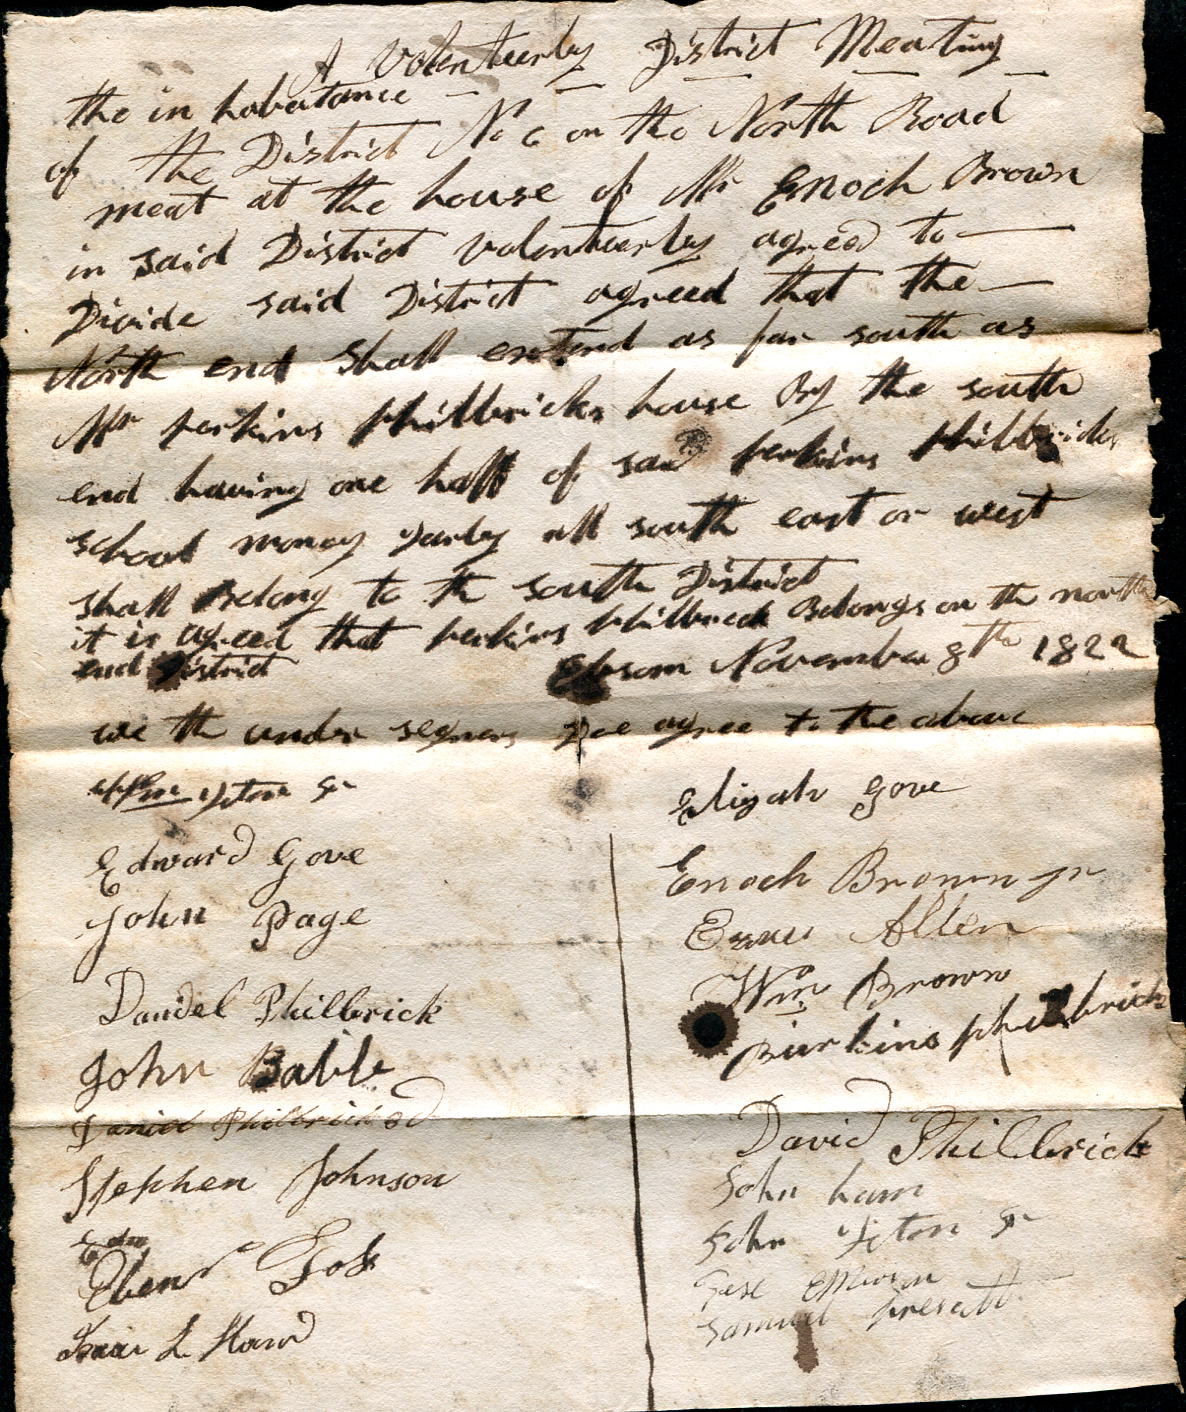 A Volenteerly District Meating
the in habatance
of the District No 6 on the North Road
meat at the house of Mr Enoch Brown
in said District volenteerley agreed to
Divide said District agreed that the
North end shall extend as far south as
Mr perkins philbricks house By the south
end having one half of said perkins philbricks
school money yearley all south east or west
shall Belong to th south District
it is agreed that perkins philbrick Belongs on th north
end District
Epsom November 8th 1822
we th under segners Doe agree to the above
Sr
Elijah Gove
Edward Gove
Enoch Brown Jr
John Page
Allen
Daniel Philbrick
Wm Brown
Purkins philbrick
John Bable
Daniel Philbrick 3d
David Philbrick
Stephen Johnson
John ham
John Sr
Ebenr Goss
Samuel prescott
Isaac L Howd